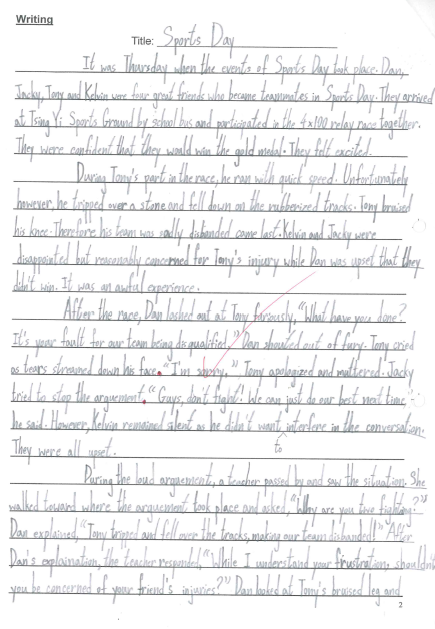 Writing
Title: Sports Day
It was Thursday when the events of Sports Day took place. Dan,
Jacky, Tony and Kelvin were four great friends who became teammates in Sports Day. They arrived
at Tsing Yi Sports Ground by school bus and participated in the 4x100 relay race together.
They were confident that they would win the gold medal. They felt excited.
During Tony's part in the race, he ran with quick speed. Unfortunately
however, he tripped over a stone and fell down on the rubberized tracks. Tony bruised
his knee. Therefore his team was sadly disbanded came last. Kelvin and Jacky were
disappointed but reasonably concerned for Tony's injury while Dan was upset that they
didn't win. It was an awful experience.
After the race, Dan lashed out at Tony furiously, "What have you done?
It's your fault for our team being disqualified." Dan shouted out of fury. Tony cried
as tears streamed down his face. "I'm sorry," Tony apologized and muttered. Jacky
tried to stop the arguement. "Guys, don't fight! We can just do our best next time,"
he said. However, Kelvin remained silent as he didn't want interfere in the conversation.
to
They were all upset.
During the loud arguement, a teacher passed by and saw the situation. She
walked toward where the arguement took place and asked, "Why are you two fighting?"
Dan explained, "Tony tripped and fell over the tracks, making our team disbanded!" After
Dan's explaination, the teacher responded, "While I understand your frustration, shouldn't
you be concerned of your friend's injuries?" Dan looked at Tony's bruised leg and
2